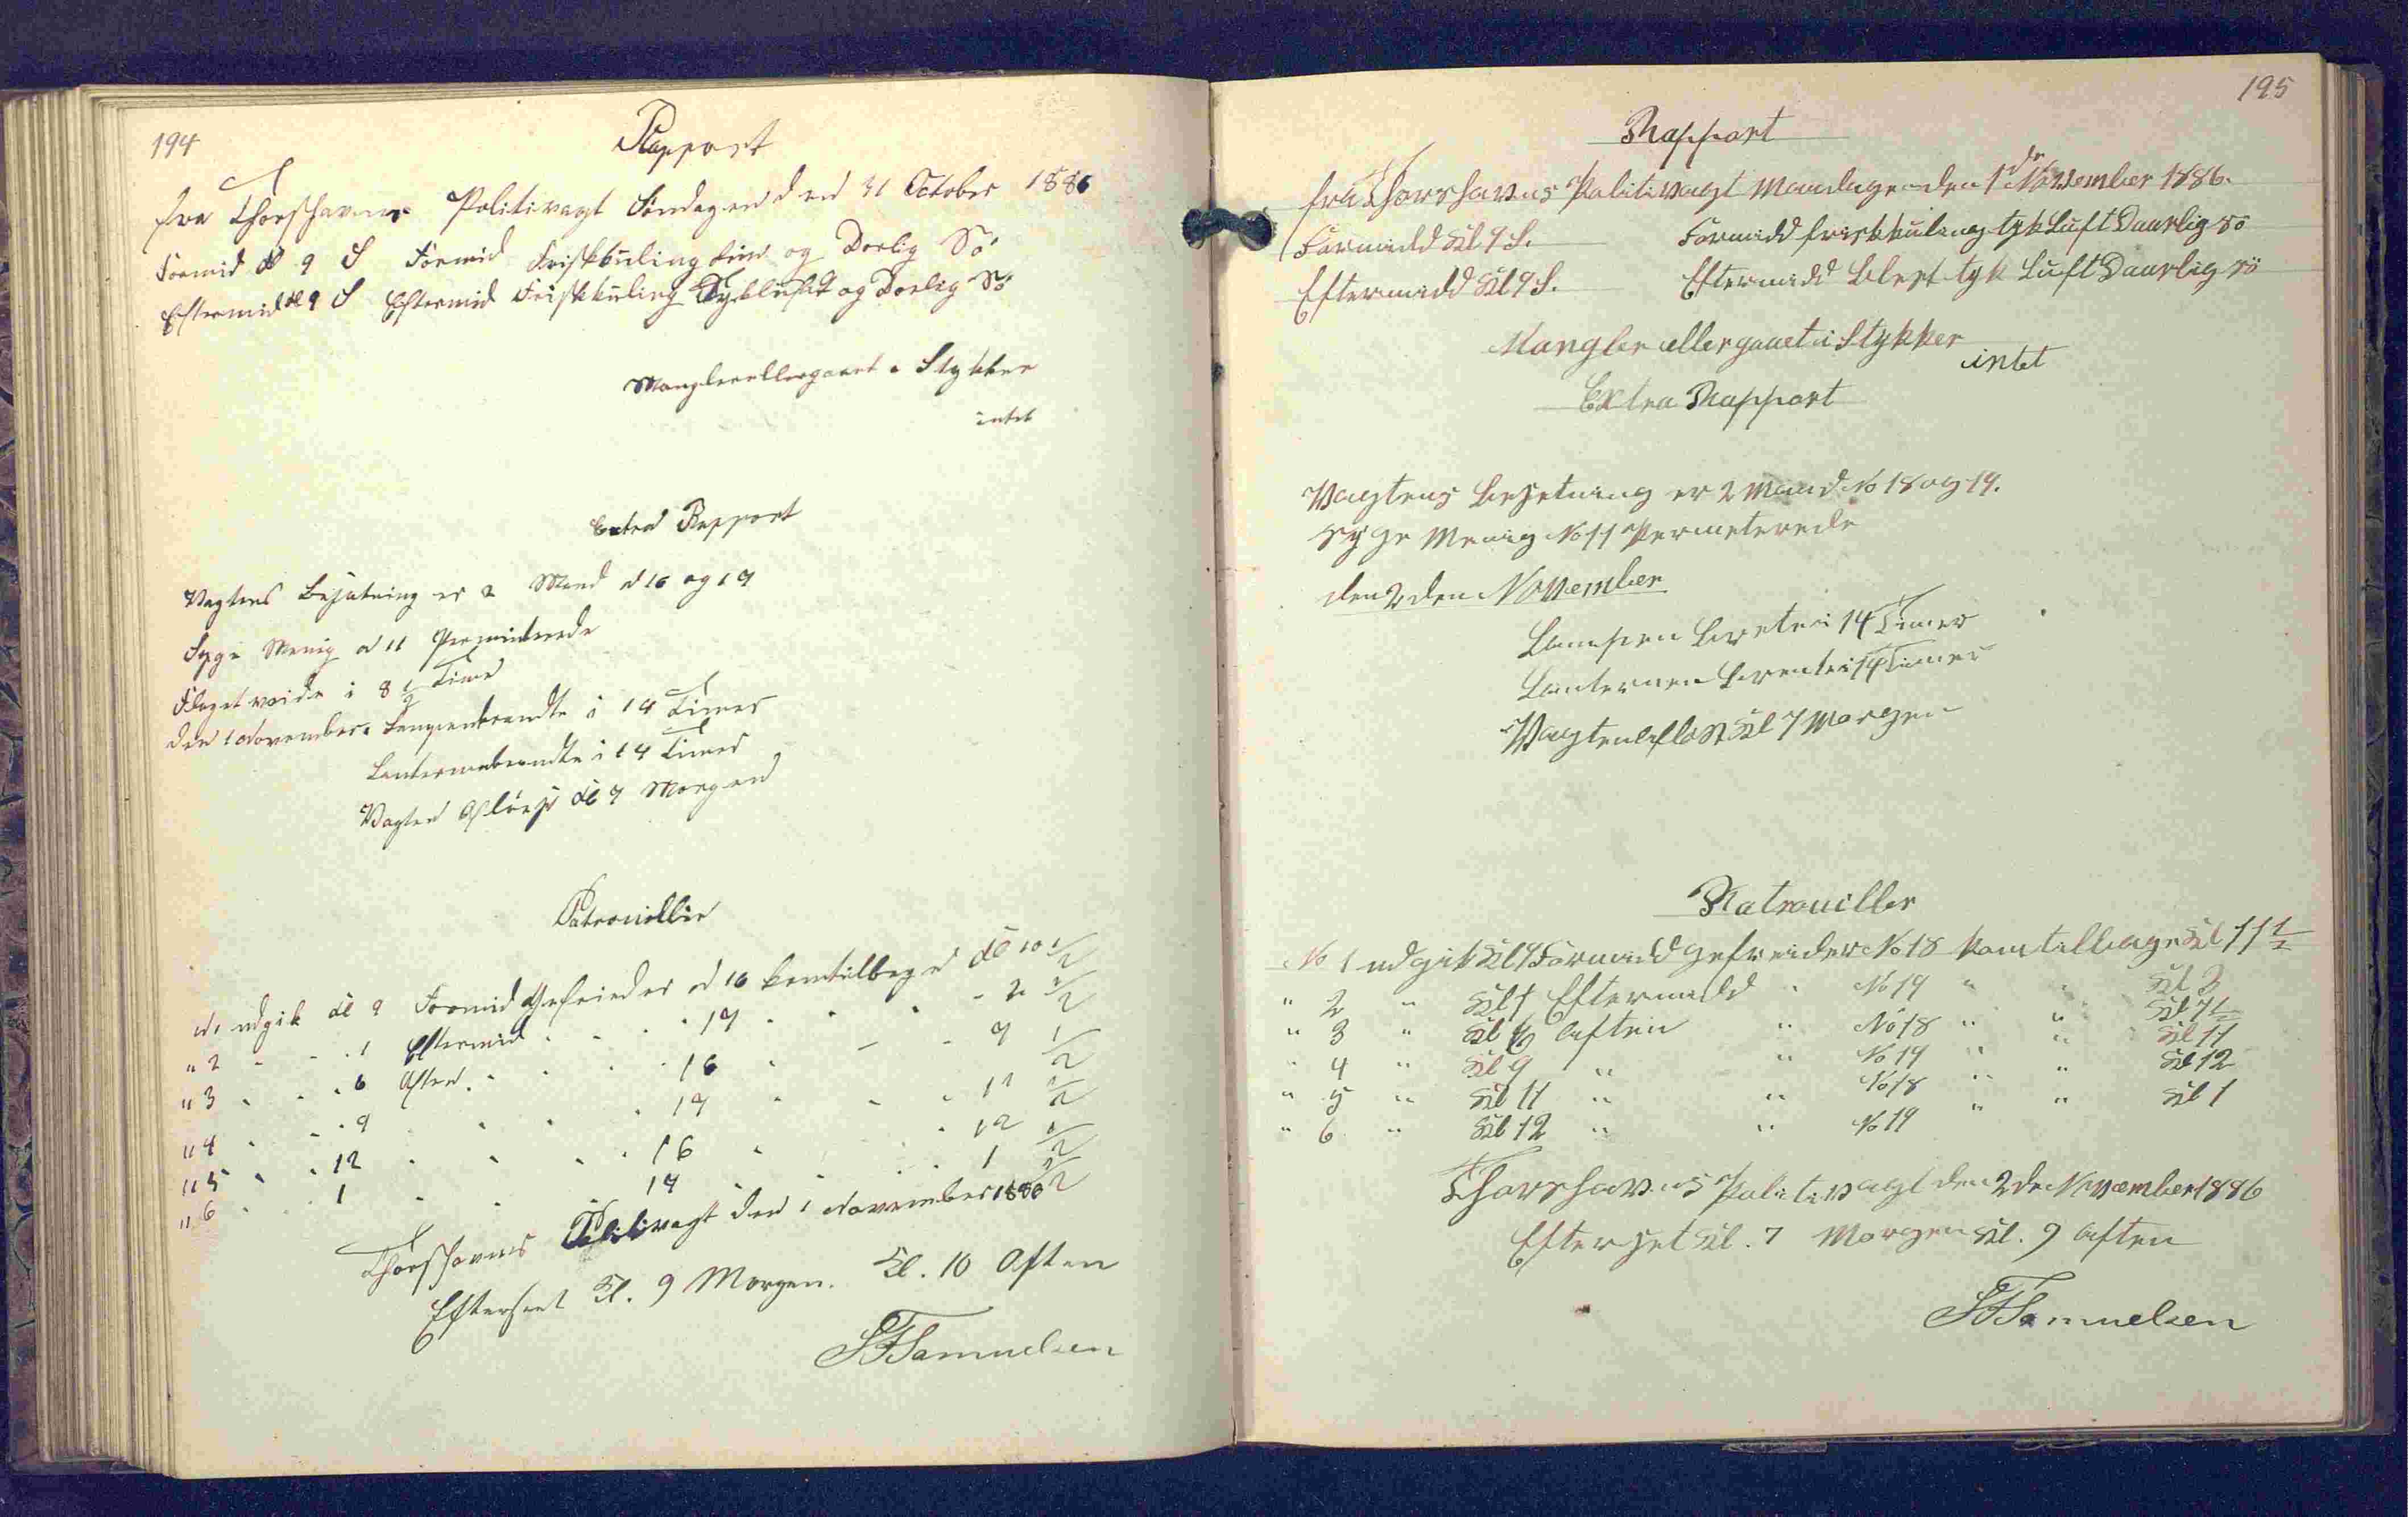 194
Rapport
fra Thorshavns Politivagt Söndagen den 31 October 1886
Formid Kl 9 S Formid Friskkuling Luft og Dorlig Sö
Eftermid Kl 9 S Eftermid Friskkuling Tykluft og Dorlig Sö
Mangler eller gaaet i Stykker
intet
Extra Rapport
Vagtens Besætning er 2 Mand N 16 og 19
Syge Menig N 11 Permiterede
Flaget vaide i 8 1/2 Time
den 1 November Lampen brændte i 14 Timer
Lanternen brændte i 14 Timer
Vagten Aflöst Kl 7 Morgen
Patrouiller
N 1 udgik Kl 9 Formid Gefreider N 16 kom tilbage Kl 10 1/2
" 2 " " 1 Eftermid " " 19 " " 2 1/2
" 3 " " 6 Aften " " 16 " " 7 1/2
" 4 " " 9 " " 19 " " 11 1/2
" 5 " " 12 " " 16 " " 12 1/2
" 6 " " 1 " " 19 " " 1 1/2
Thorshavns Politivagt den 1 November 1886
Efterseet Kl. 9 Morgen. Kl. 10 Aften
Samuelsen
195
Rapport
fra Thorshavns Politivagt Mandagen den 1de November 1886.
Formidd Kl 9 S. Formidd frisk kuling tyk Luft Daarlig sö
Eftermidd Kl 9 S. Eftermidd blest tyk Luft Daarlig sö
Mangler eller gaaet i Stykker
intet
Extra Rapport
Vagtens besetning er 2 Mand No 18 og 19.
Syge Menig No 11 Permeterede
den 2den November
Lampen brente i 14 Timer
Lanternen brente i 14 Timer
Vagten aflöst Kl 7 Morgen
Patrouiller
No 1 udgik Kl 9 Formidd gefreider No 18 kom tilbage Kl 11 1/2
" 2 " Kl 1 Eftermidd " No 19 " " Kl 3
" 3 " Kl 6 aften " No 18 " " Kl 7 1/2
" 4 " Kl 9 " " No 19 " " Kl 11
" 5 " Kl 11 " " No 18 " " Kl 12
" 6 " Kl 12 " " No 19 " " Kl 1
Thorshavns Politivagt den 2de November 1886
Efterset Kl. 7 Morgen Kl. 9 aften
Samuelsen